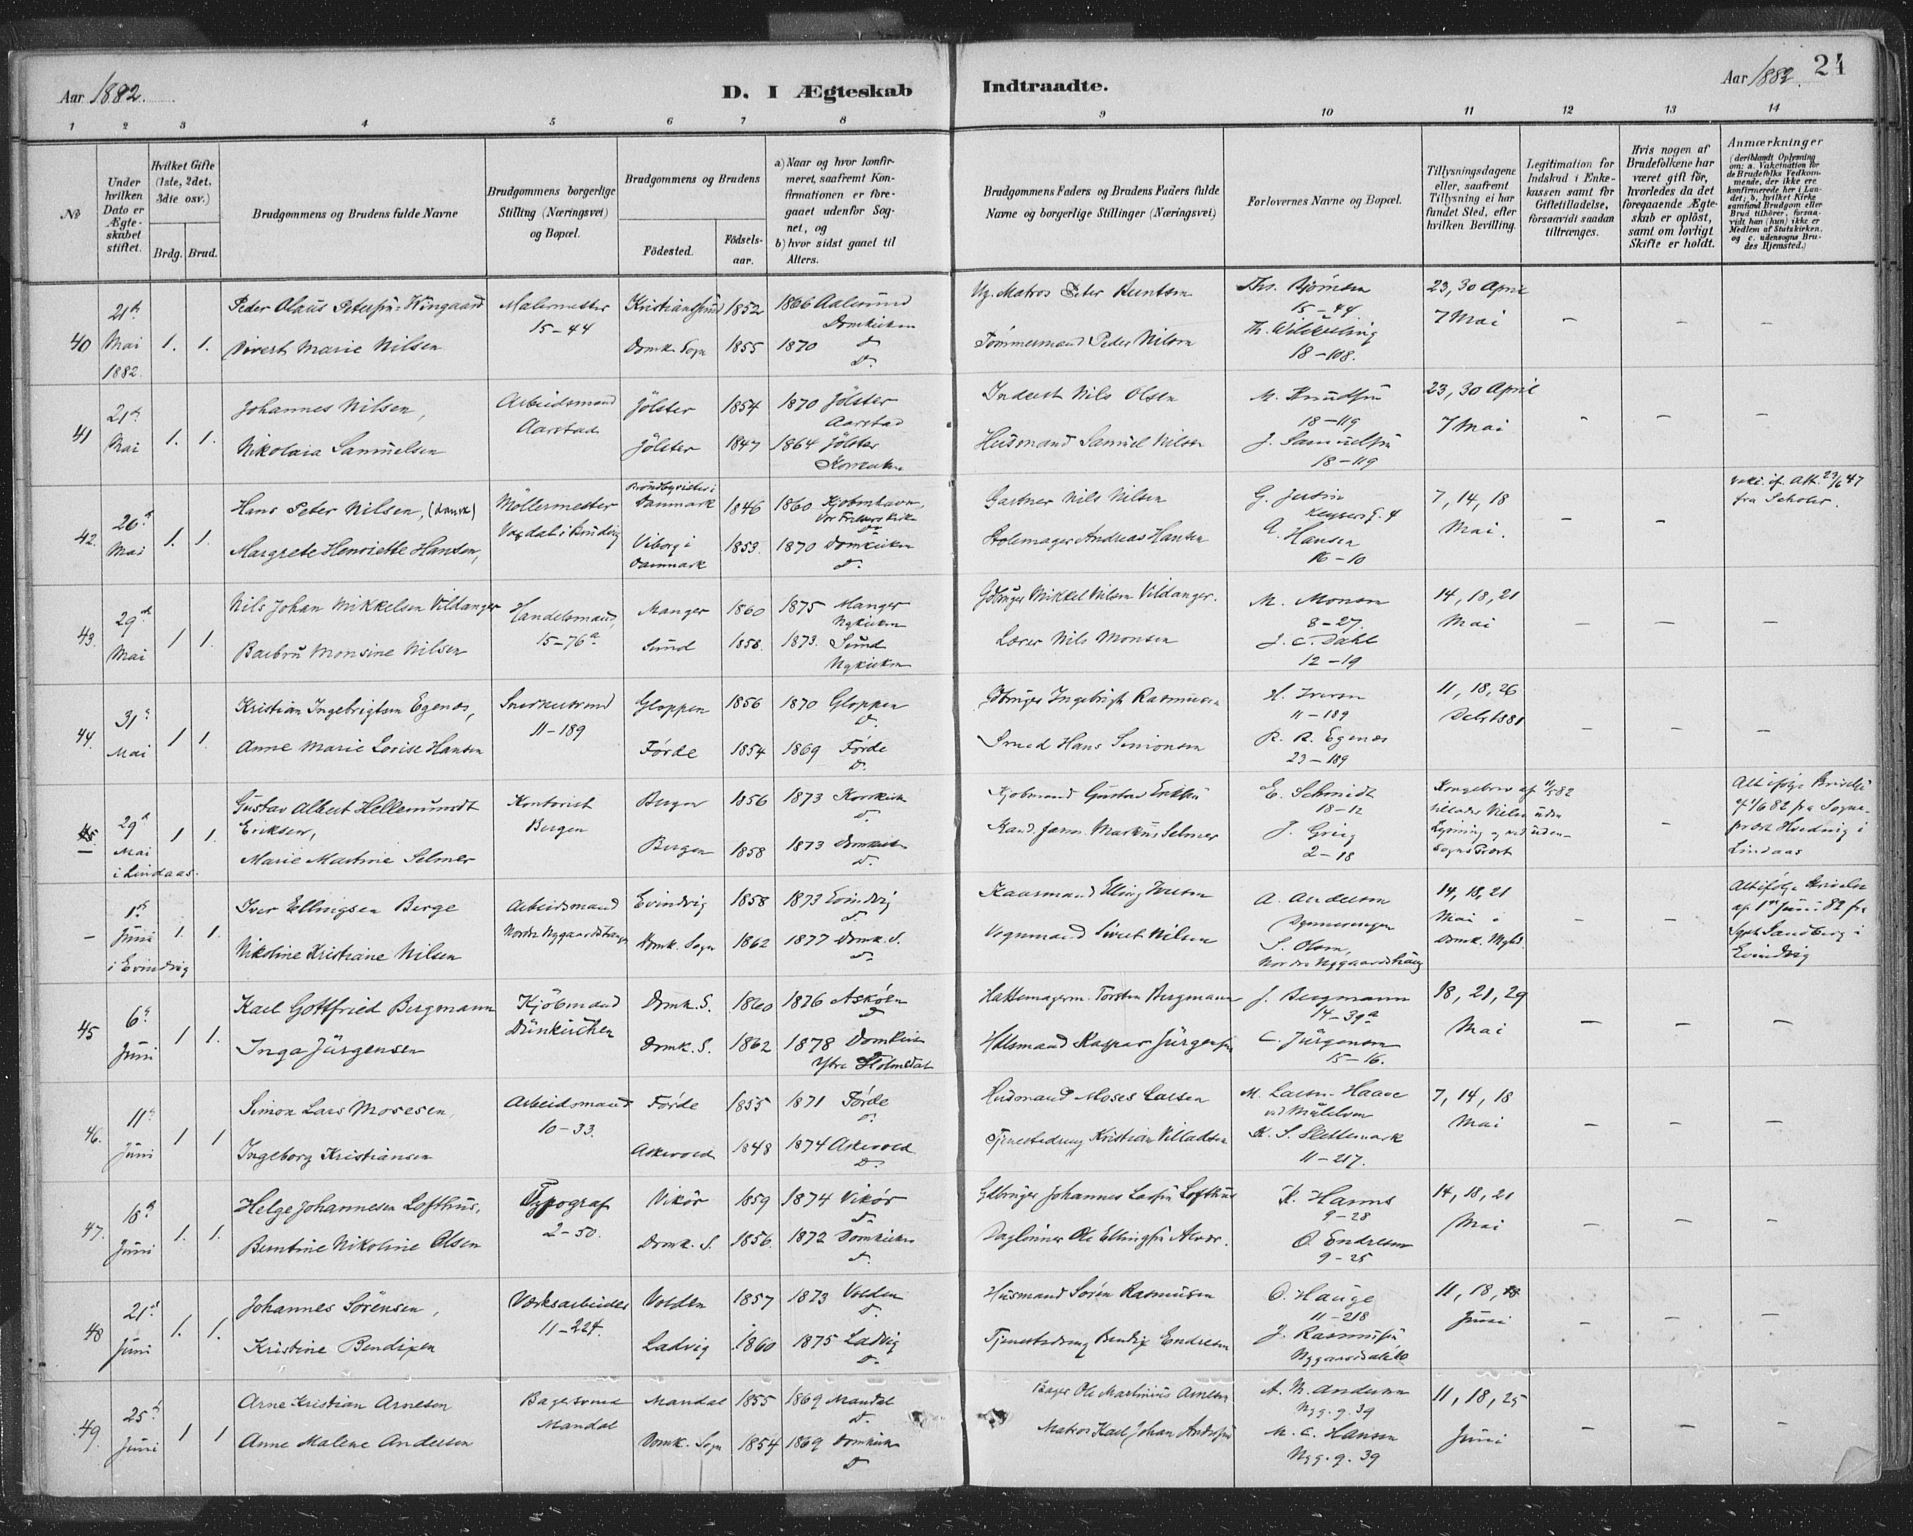 Aar 1882.
D. I Ægteskab
Indtraadte.
Aar 1882.
24
1 2 3 4 5 6 7 8 9 10 11 12 13 14
No
Under hvilken Dato er Ægteskabet stiftet.
Hvilket Gifte (1ste, 2det, 3die osv.)
Brdg. Brud.
Brudgommens og Brudens fulde Navne
Brudgommens borgerlige Stilling (Næringsvei) og Bopæl.
Brudgommens og Brudens
Fødested.
Fødselsaar.
a) Naar og hvor konfirmeret, saafremt Konfirmationen er foregaaet udenfor Sognet, og
b) hvor sidst gaaet til Alters.
Brudgommens Faders og Brudens Faders fulde Navne og borgerlige Stillinger (Næringsvei)
Forlovernes Navne og Bopæl.
Tillysningsdagene eller, saafremt Tillysning ei har fundet Sted, efter hvilken Bevilling.
Legitimation for Indskud i Enkekassen samt for Giftetilladelse, forsaavidt saadan tiltrænges.
Hvis nogen af Brudefolkene har været gift før, hvorledes da det foregaaende Ægteskab er opløst, samt om lovligt Skifte er holdt.
Anmærkninger
(deriblandt Oplysning om: a. Vakcination for de Brudefolks Vedkommende, der ikke ere konfirmerede her i Landet; b. hvilket Kirkesamfund Brudgom eller Brud tilhører, forsaavidt han (hun) ikke er Medlem af Statskirken, og c. udensogns Brudes Hjemsted.)
40 21de Mai 1882. 1. 1.
Peder Olaus Petersen Wingaard Malermester 15-44 Kristianssund 1852 1866 Aalesund Domkirken Peter Kuntsen Chs. Bjørnsen 15-44 23, 30 April
Sivert Marie Nilsen Domk. Sogn 1855 1870 d. D. Tømmermand Peder Nilsen 18-108. 7 Mai
41 21de Mai 1. 1.
Johannes Nilsen, Arbeidsmand Aarstad Jølster 1854 1870 Jølster Aarstad Inderst Nils Olsen M. Knudsen 18-119 23, 30 April
Nikolaia Samuelsen Jølster 1847 1864 Jølster Korskirken Husmand Samuel Nilsen J. Samuelsen 18-119 7 Mai
42. 26de Mai 1. 1.
Hans Peter Nilsen, (dansk) Møllermester Danmark 1846 1860 Kjøbenhavn, Vor Frelsers Kirke Gartner Nils Nilsen G. Jessen Keysers G. 4 7, 14, 18 Mai. fra Skoler.
Margrete Henriette Hansen, Viborg i Danmark 1853. 1870 Domkirken d. Stolemager Andreas Hansen A. Hansen 16-10
43. 29de Mai 1 1.
Nils Johan Mikkelsen Vildanger Handelsmand, 15-76a Manger 1860 1875 Manger Nykirken Gdbruger Mikkel Nilsen Vildanger. M. Monsen 8-27. 14, 18, 21 Mai
Barbru Monsine Nilsen Sund 1858. 1873. Sund Nykirken Lærer Nils Monsen J. C. Dahl 12-19
44. 31te Mai 1 1.
Kristian Ingebrigtsen Egenæs, Snedkersvend 11-189 Gloppen 1856 1870 Gloppen d. Gdbruger Ingebrigt Rasmussen H. Iversen 11-189 11, 18, 26 Decbr 1881
Anne Marie Lovise Hansen Førde 1854 1869 Førde D. Smed Hans Simonsen R. R. Egenæs 23-189
45 29de Mai i Lindaas. 1 1.
Gustav Albert Hellemundt Eriksen, Kontorist Bergen Bergen 1856 1873 Korskirk d. Kjøbmand Gustav Eriksen E. Schmidt 18-12
Marie Martine Selmer Bergen 1858 1873 Domkirk d. Kand. Markus Selmer J. Grieg 2-18
Sogneprest Hvedvig i Lindaas
– 1ste Juni i Evindvig 1. 1.
Iver Ellingsen Berge Arbeidsmand Nordre Nygaardstange Evindvig 1858 1873 Evindvig d. Kaarmand Elling Iversen A. Andersen 14, 18, 21 Mai i
Nikoline Kristiane Nilsen Domk. Sogn 1862 1877 Domk. S. d. Vognmand Sivert Nilsen S. Olsen, Nordre Nygaardstang
Alt ifølge Skrivelse af 1ste Juni 82 fra Sgpr. Sandberg i Evindvig
45 6te Juni 1 1.
Karl Gottfried Bergmann Kjøbmand Dünkirchen Domk. S. 1860 1876 Askøen d. Hattemagerm. Torsten Bergmann J. Bergmann 14-39a 18, 21, 29 Mai
Inga Jürgensen Domk. S. 1862 1878 Domkirk Ytre Holmedal Hdlsmand Kaspar Jürgensen C. Jürgensen 15-16.
46. 11te Juni 1 1
Simon Lars Mosesen, Arbeidsmand 10-33. Førde 1855 1871 Førde d. Husmand Moses Larsen M. Larsen Haave ved Møllelven 7, 14, 18 Mai
Ingeborg Kristiansen Askevold 1848 1874 Askevold D. Tjenestedreng Kristian Villadsen K. S. Slettemark 11-217.
47. 16de Juni 1. 1.
Helge Johannesen Lofthus, Typograf 2-50. Vikør 1859 1874 Vikør d. Gdbruger Johannes Larsen Lofthus K. Hanns 9-28 14, 18, 21 Mai
Berntine Nikoline Olsen Domk. S. 1856. 1872 Domkirken d. Daglønner Ole Ellingsen Alver. O. Endresen 9-25
48 21de Juni 1. 1.
Johannes Sørensen, Værksarbeider 11-224. Volden 1857 1873 Volden d. Husmand Søren Rasmussen O. Hauge 11-218 11, 18, 18 Juni
Kristine Bendixen Ladvig 1860 1875 Ladvig d. Tjenestedreng Bendix Endresen J. Rasmussen
49. 25de Juni 1 1
Arne Kristian Arnesen Bagersvend Mandal Mandal 1855 1869 Mandal d. Bager Ole Martinius Arnesen A. M. Andersen Nyg. g. 39 11, 18, 25 Juni
Anne Malene Andersen Domk. Sogn 1854 1869 Domkirk d Matros Karl Johan Andersen M. C. Hansen Nyg. g. 39